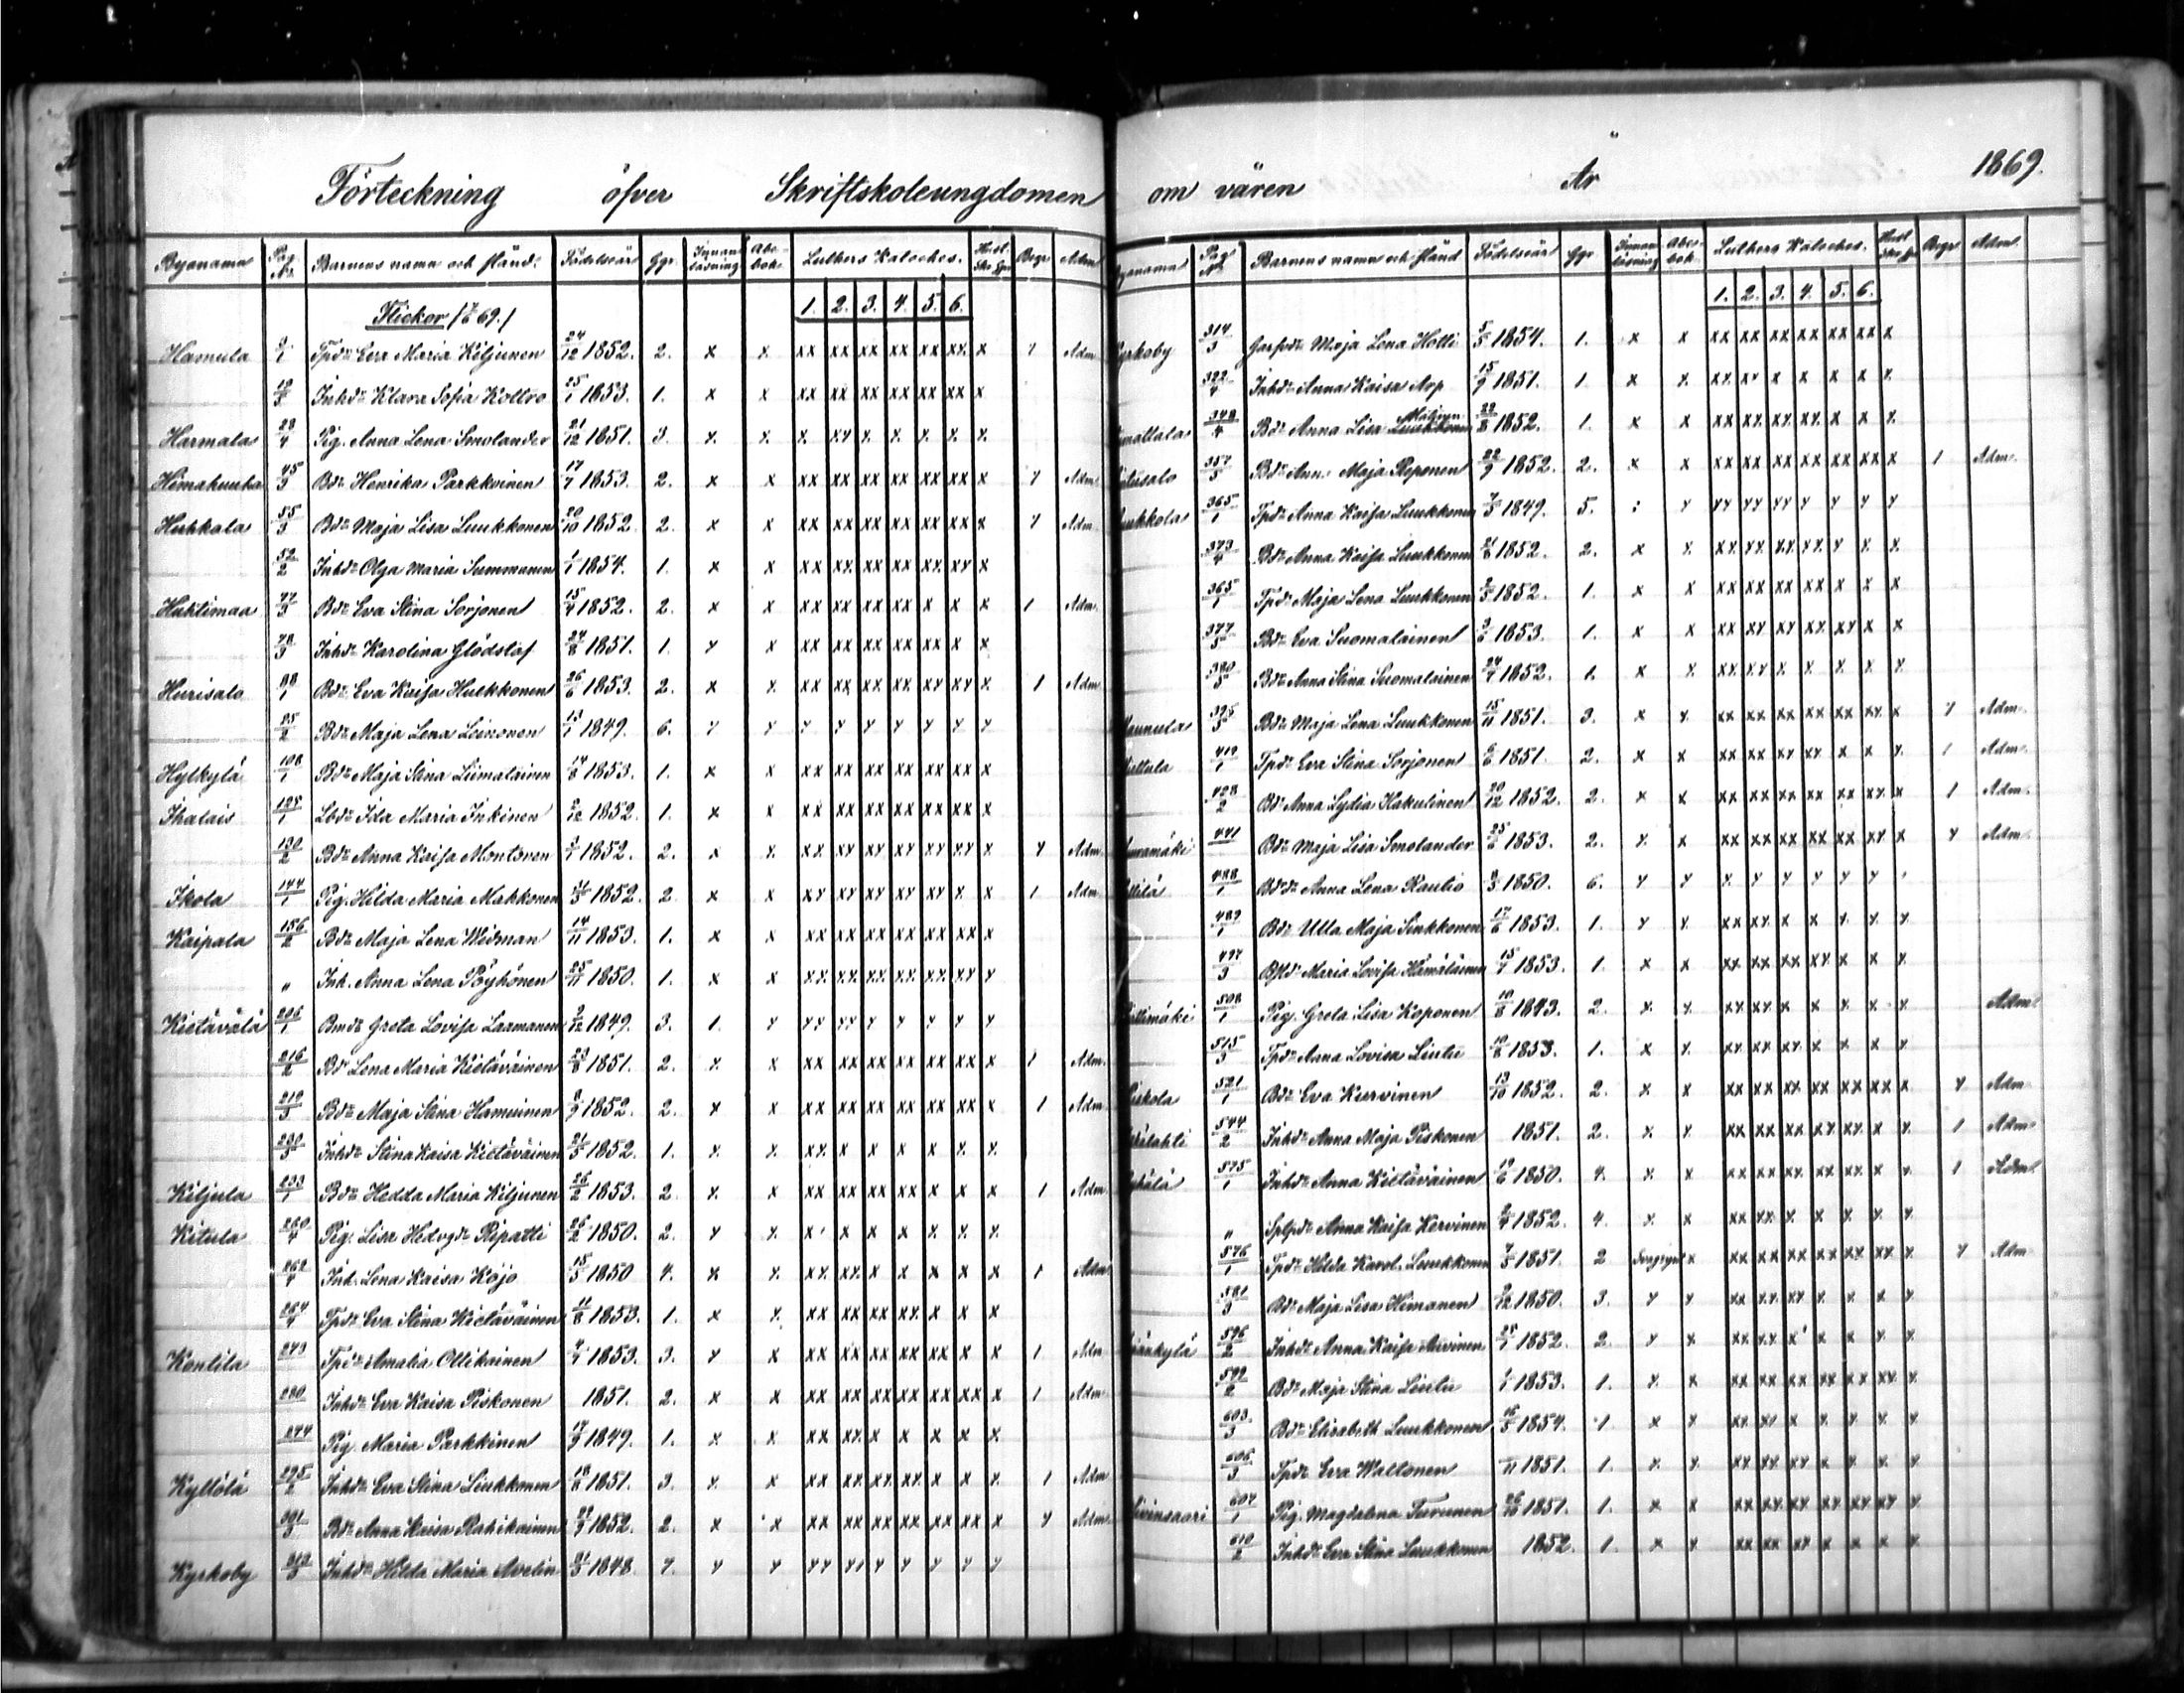 Förteckning öfver Skriftskoleungdomen om våren År 1869.
Byanamn Pag. Nr. Barnens namn och stånd. Födelseår Ggr. Innanläsning Abc-bok Luthers Kateches. Hust. Begr Adm.
1. 2. 3. 4. 5. 6.
Flickor
Hamula 2/1 Tpdr Eva Maria Kiljunen 24/12 1852. 2. x x xx xx xx xx xx xx x 1 Adm
19/3 Inhdr Klara Sofia Kottro 25/1 1853. 1. x x xx xx xx xx xx xx x
Harmala 28/4 Pig. Anna Lena Smolander 21/12 1851. 3. x x x xx x x x x x
Himahuuta 45/3 Bdr Henrika Parkkoinen 17/7 1853. 2. x x xx xx xx xx xx xx x 1 Adm
Huhkala 55/3 Bdr Maja Lisa Luukkonen 20/10 1852. 2. x x xx xx xx xx xx xx x 1 Adm
52/2 Inhdr Olga Maria Summanen 1/1 1854. 1. x x xx xx xx xx xx xx x
Huhtimaa 77/3 Bdr Eva Stina Sorjonen 15/4 1852. 2. x x xx xx xx xx x x x 1 Adm.
78/3 Inhdr Karolina Glödstaf 24/8 1851. 1. x x xx xx xx xx xx x x
Hurisalo 88/1 Bdr Eva Kaisa Hulkkonen 26/6 1853. 2. x x xx xx xx xx xx xx x 1 Adm
85/2 Bdr Maja Lena Leinonen 13/1 1849. 6. x x x x x x x x x
Hylkylä 108/1 Bdr Maja Stina Liimalainen 14/8 1853. 1. x x xx xx xx xx xx xx x
Ihalais 125/1 Lbdr Ida Maria Inkinen 2/12 1852. 1. x x xx xx xx xx xx xx x
130/2 Bdr Anna Kaisa Montonen 3/1 1852. 2. x x xx xx xx xx xx xx x 1 Adm.
Ikola 144/1 Pig. Hilda Maria Makkonen 31/3 1852. 2 x x xx xx xx xx xx x x 1 Adm
Kaipala 156/2 Bdr Maja Lena Widman 14/11 1853. 1. x x xx xx xx xx xx xx x
" Inh. Anna Lena Pöyhönen 25/11 1850. 1. x x xx xx xx xx xx xx x
Kietävälä 206/1 Bmdr Greta Lovisa Laamanen 3/12 1849. 3. 1. x xx xx x x x x x
216/2 Bdr Lena Maria Kietäväinen 23/8 1851. 2. x x xx xx xx xx xx xx x 1 Adm.
219/3 Bdr Maja Stina Hamuinen 8/9 1852. 2. x x xx xx xx xx xx xx x 1 Adm
230/3 Inhdr Stina Kaisa Kietäväinen 21/5 1852. 1. x x xx x x x x x x
Kiljula 233/1 Bdr Hedda Maria Kiljunen 26/2 1853. 2 x x xx xx xx xx x x x 1 Adm
Kitula 260/4 Pig. Lisa Hedvgdr Ripatti 26/2 1850. 2. x x x x x x x x x
262/4 Inh. Lena Kaisa Kojo 15/5 1850 4. x x xx xx x x x x x 1 Adm
264/4 Tpdr Eva Stina Kietäväinen 11/8 1853. 1. x x xx xx xx xx x x x
Kontila 273 Tpdr Amalia Ollikainen 4/7 1853. 3. x x xx xx xx xx xx x x 1 Adm
280 Inhdr Eva Kaisa Piskonen 1851. 2. x x xx xx xx xx xx xx x 1 Adm
274 Pig. Maria Parkkinen 17/9 1849. 1. x x xx xx x x x x x
Kyllölä 295/2 Inhdr Eva Stina Liukkonen 18/8 1851. 3. x x xx xx xx xx x x x 1 Adm
301/3 Bdr Anna Kaisa Rahikainen 21/9 1852. 2. x x xx xx xx xx xx xx x 1 Adm.
Kyrkoby 313/3 Inhdr Hilda Maria Avelin 31/3 1848. 7. x x xx xx x x x x x
Byanamn Pag Nr. Barnens namn och stånd Födelseår Ggr Innanläsning Abc-bok Luthers Kateches. Hust Begr Adm.
1. 2. 3. 4. 5. 6.
Kyrkoby 314/3 Maja Lena Holli 5/5 1854. 1. x x xx xx xx xx xx xx x
322/4 Inhdr Anna Kaisa Arp 15/9 1851. 1. x x xx xx x x x x x
348/4 Bdr Anna Lisa 22/8 1852. 1. x x xx xx xx xx x x x
357/3 Bdr Ann. Maja Reponen 22/9 1852. 2. x x xx xx xx xx xx xx x 1 Adm.
365/1 Tpdr Anna Kaisa Luukkonen 7/5 1849. 5. x xx xx xx x x x x
373/4 Bdr Anna Kaisa Luukkonen 21/8 1852. 2. x x xx xx xx xx x x x
365/1 Tpdr Maja Lena Luukkonen 2/5 1852. 1. x x xx xx xx xx x x x
377/5 Bdr Eva Suomalainen 3/6 1853. 1. x x xx xx xx xx xx x x
380/5 Bdr Anna Stina Suomalainen 24/7 1852. 1. x x xx xx x x x x x
395/3 Bdr Maja Lena Luukkonen 15/11 1851. 3. x x xx xx xx xx xx xx x 1 Adm.
419/1 Tpdr Eva Stina Sorjonen 6/6 1851. 2. x x xx xx xx xx x x x 1 Adm.
428/2 Bdr Anna Lydia Hakulinen 20/12 1852. 2. x x xx xx xx xx xx xx x 1 Adm.
441 Bdr Maja Lisa Smolander 25/6 1853. 2. x x xx xx xx xx xx xx x 1 Adm
488/1 Anna Lena Kautio 3/5 1850. 6. x x x x x x x x
489/1 Bdr Ulla Maja Sinkkonen 17/6 1853. 1. x x xx xx x x x x x
497/3 Maria Lovisa Hämäläinen 15/7 1853. 1. x x xx xx xx xx x x x
508/1 Pig. Greta Lisa Koponen 10/8 1843. 2. x x xx xx x x x x x Adm.
515/3 Tpdr Anna Lovisa Lintu 10/8 1853. 1. x x xx xx xx x x x x
521/1 Bdr Eva Kurvinen 13/10 1852. 2. x x xx xx xx xx xx xx x 1 Adm
544/2 Inhdr Anna Maja Piskonen 1851. 2. x x xx xx xx xx xx x x 1 Adm
575/1 Inhdr Anna Kietäväinen 19/6 1850. 4. x x xx xx xx xx xx x x 1 Adm
" Anna Kaisa Kervinen 2/4 1852. 4. x x xx xx x x x x x
576/1 Tpdr Hilda Karol. Luukkonen 7/5 1851. 2 Svagsynt x xx xx xx xx xx xx x 1 Adm
581/3 Bdr Maja Lisa Himanen 2/12 1850. 3. x x xx xx xx x x x x
596/2 Inhdr Anna Kaisa Arvinen 25/7 1852. 2. x x xx xx x x x x x
592/2 Bdr Maja Stina Lintu 1/1 1853. 1. x x xx xx xx xx xx xx x
603/3 Bdr Elisabeth Luukkonen 16/5 1854. 1. x x xx xx x x x x x
606/3 Tpdr Eva Waltonen /11 1851. 1. x x xx xx xx xx x x x
607/1 Pig. Magdalena Turunen 26/10 1851. 1. x x xx xx xx xx xx xx x
610/2 Inhdr Eva Stina Luukkonen 1852. 1. x x xx xx xx x x x x